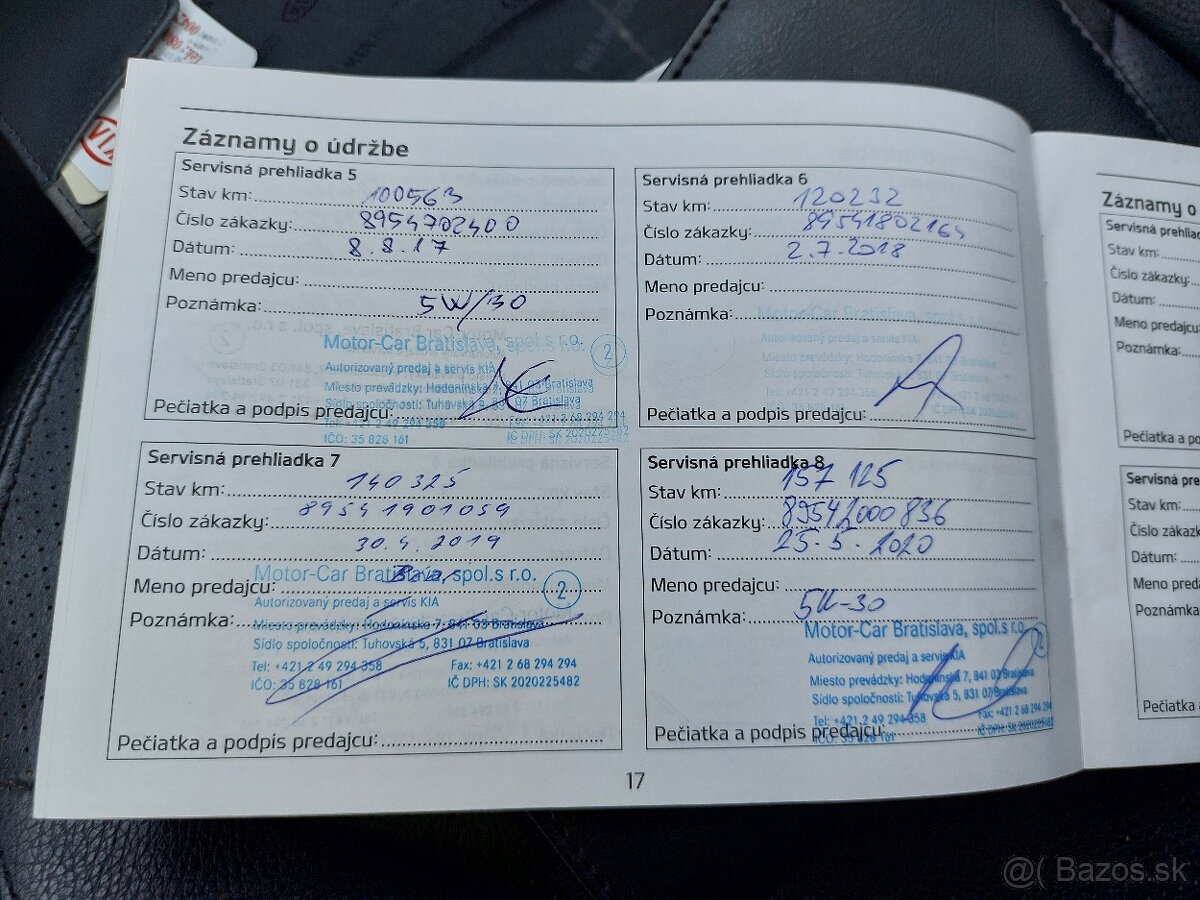 Záznamy o údržbe
Servisná prehliadka 5
Stav km: 100563
Číslo zákazky: 8954702400
Dátum: 8.8.17
Meno predajcu:
Poznámka: 5W/30
Motor-Car Bratislava, spol.s r.o. 2
Autorizovaný predaj a servis KIA
Miesto prevádzky: Hodonínska 7, 841 03 Bratislava
Sídlo spoločnosti: Tuhovská 5, 831 07 Bratislava
Pečiatka a podpis predajcu:
IČO: 35 828 161 IČ DPH: SK 2020225482
Servisná prehliadka 6
Stav km: 120232
Číslo zákazky:
Dátum: 2.7.2018
Meno predajcu:
Poznámka:
Autorizovaný predaj a servis KIA
Pečiatka a podpis predajcu:
Servisná prehliadka 7
Stav km: 140325
Číslo zákazky: 89541901059
Dátum: 30.4.2019
Meno predajcu:
Motor-Car Bratislava, spol.s r.o. 2
Autorizovaný predaj a servis KIA
Poznámka:
Miesto prevádzky: Hodonínska 7, 841 03 Bratislava
Sídlo spoločnosti: Tuhovská 5, 831 07 Bratislava
Tel: +421 2 49 294 358 Fax: +421 2 68 294 294
IČO: 35 828 161 IČ DPH: SK 2020225482
Pečiatka a podpis predajcu:
Servisná prehliadka 8
Stav km: 157 125
Číslo zákazky: 89542000836
Dátum: 25.5.2020
Meno predajcu:
Poznámka: 5W-30
Motor-Car Bratislava, spol.s r.o. 2
Autorizovaný predaj a servis KIA
Miesto prevádzky: Hodonínska 7, 841 03 Bratislava
Sídlo spoločnosti: Tuhovská 5, 831 07 Bratislava
Tel: +421 2 49 294 358 Fax: +421 2 68 294 294
Pečiatka a podpis predajcu:
IČO: 35 828 161 IČ DPH: SK 2020225482
17
Záznamy o
Stav km:
Číslo zákazky:
Dátum:
Meno predajcu:
Poznámka:
Pečiatka a po
Servisná pre
Stav km:
Číslo zákazk
Dátum:
Meno preda
Poznámka:
Pečiatka a
Bazos.sk